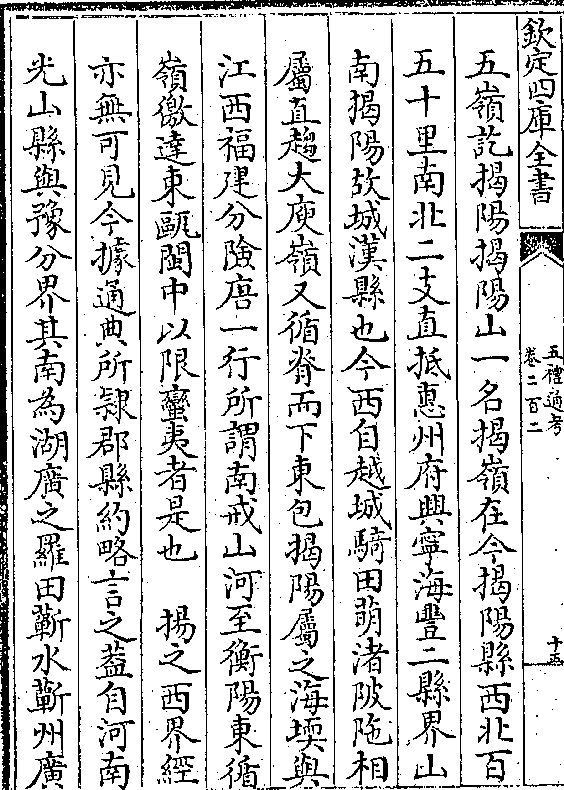 欽定四庫全書
五禮通考
卷二百二
十五
五嶺訖揭陽揭陽山一名揭嶺在今揭陽縣西北百
五十里南北二支直抵惠州府興寧海豐二縣界山
南揭陽故城漢縣也今西自越城騎田萌渚陂陁相
屬直趨大庾嶺又循脊而下東包揭陽屬之海堧與
江西福建分險唐一行所謂南戒山河至衡陽東循
嶺徼達東甌閩中以限蠻夷者是也　揚之西界經
亦無可見今據通典所隸郡縣約略言之葢自河南
光山縣與豫分界其南為湖廣之羅田蘄水蘄州廣